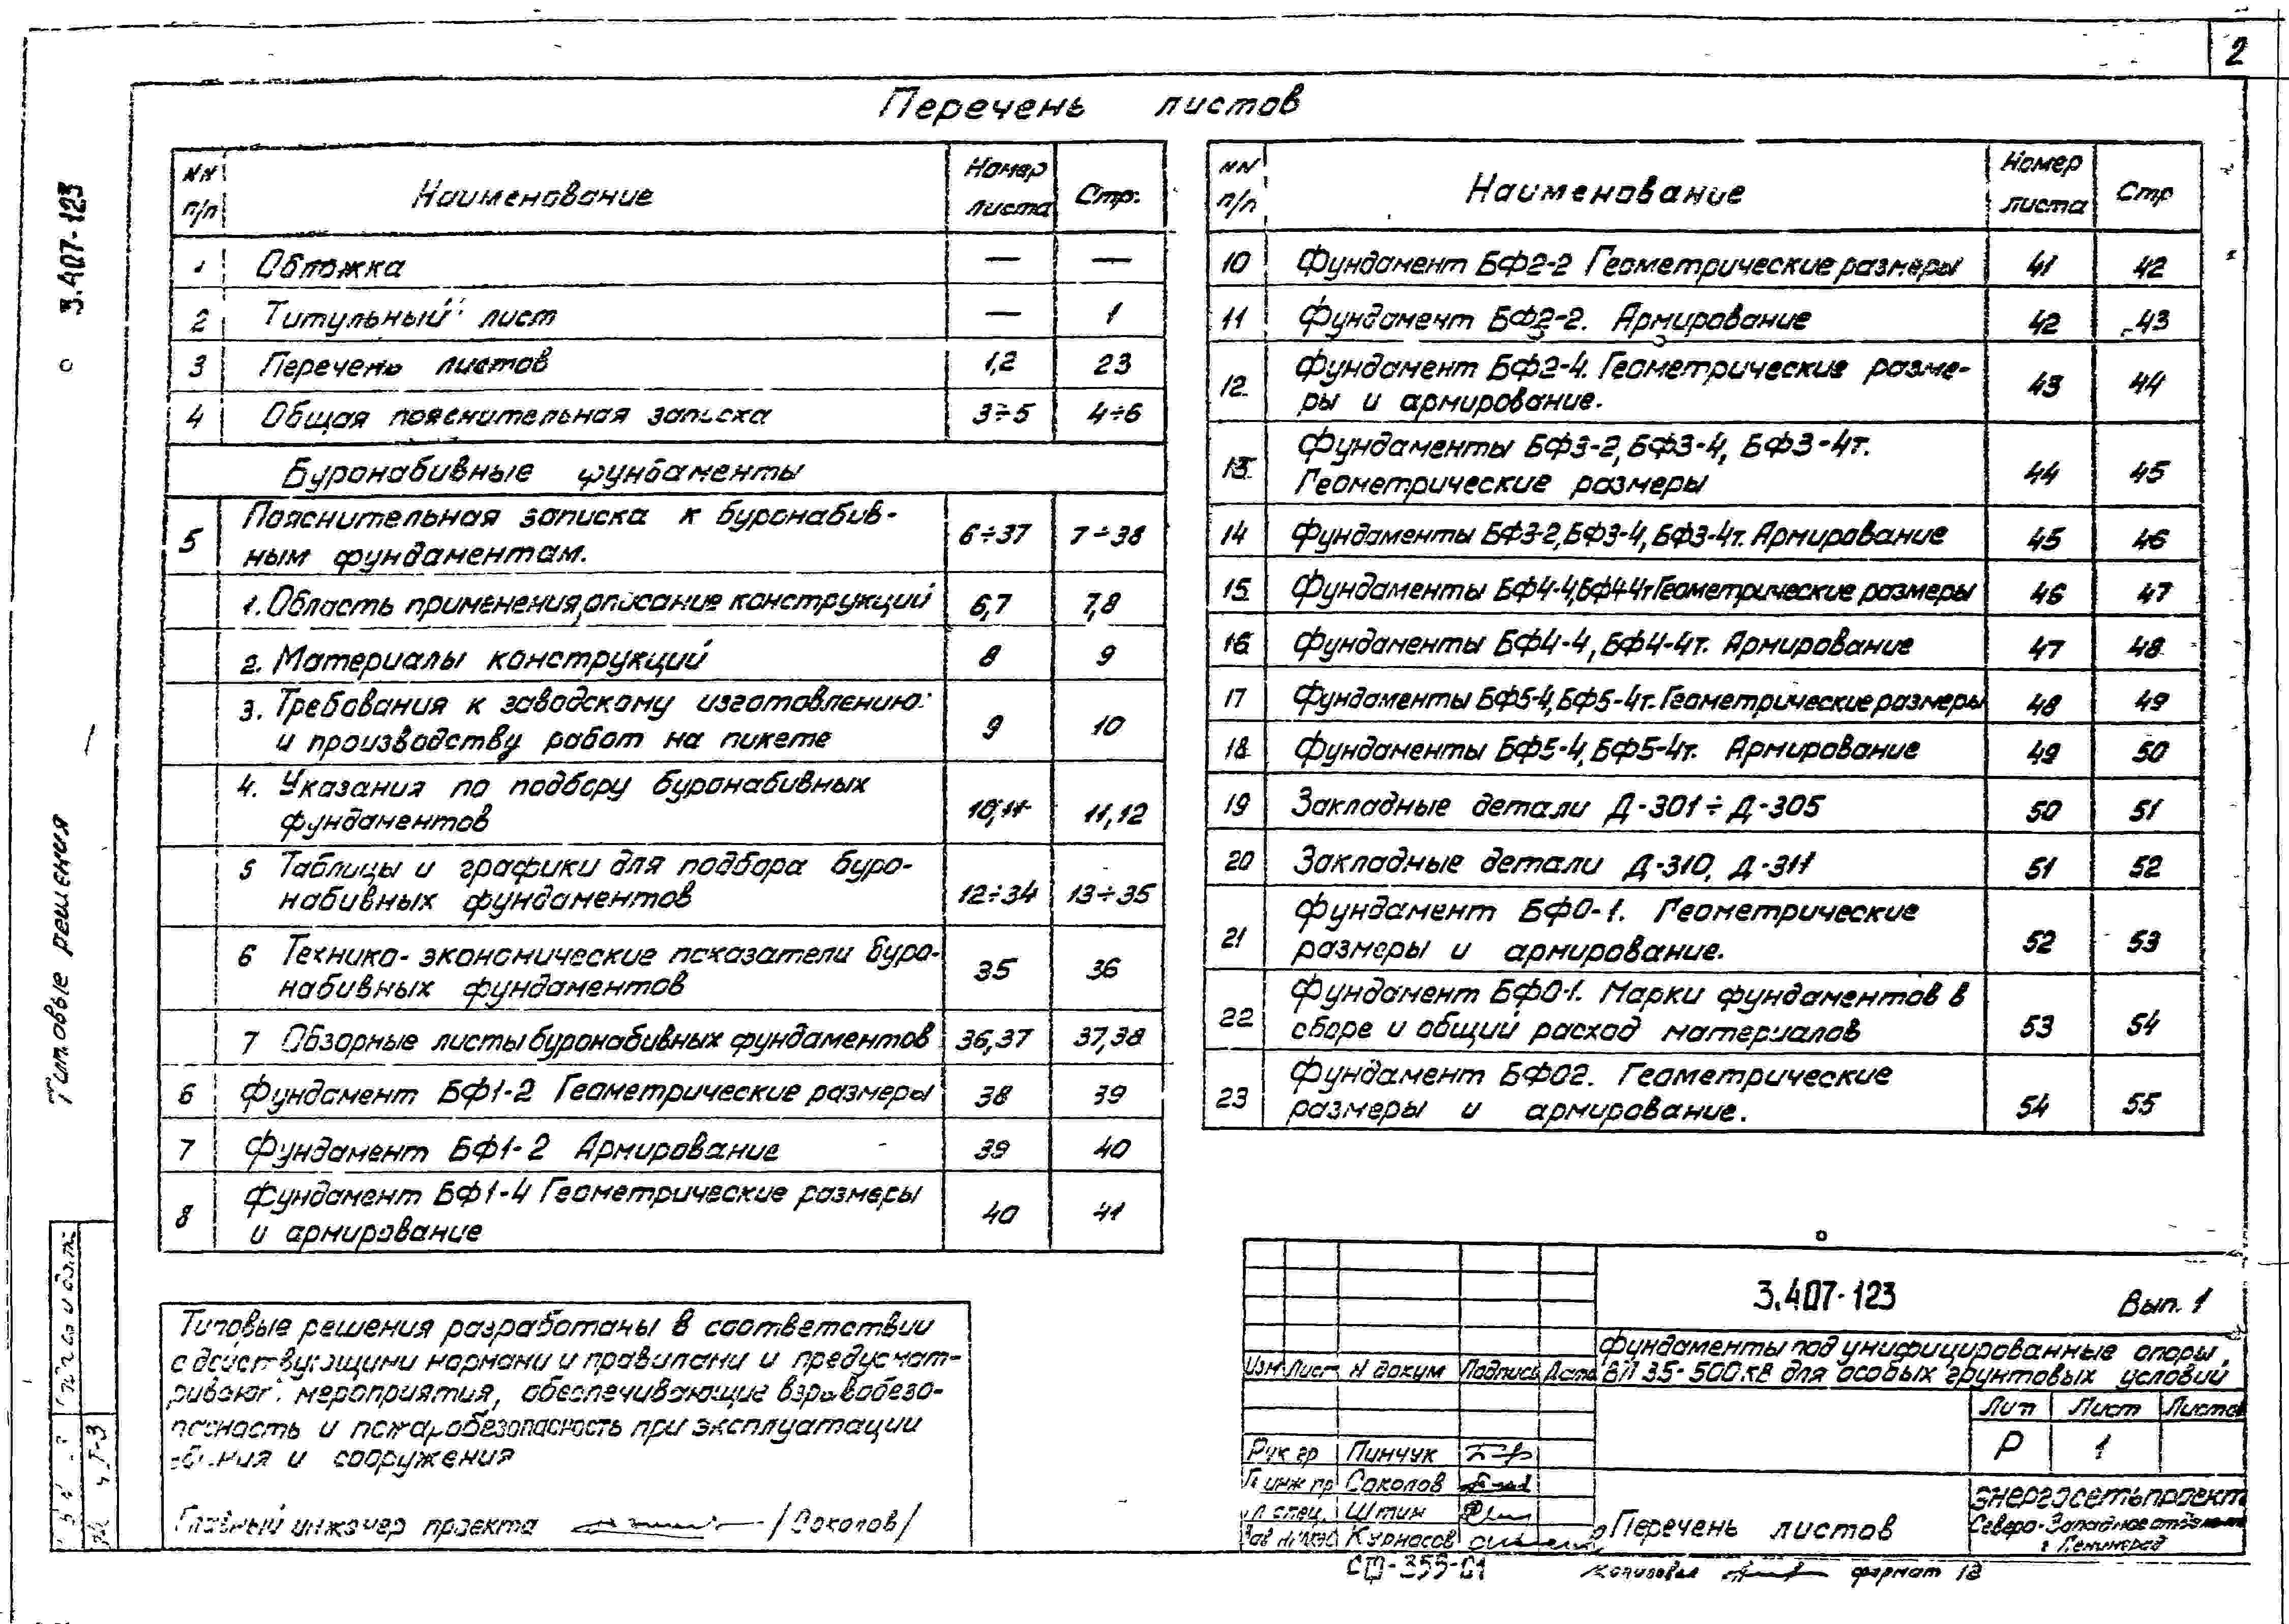 2
Перечень листов
NN п/п Наименование Номер листа Стр.
1 Обложка — —
2 Титульный лист — 1
3 Перечень листов 1,2 23
4 Общая пояснительная записка 3÷5 4÷6
Буронабивные фундаменты
5 Пояснительная записка к буронабив-
ным фундаментам. 6÷37 7÷38
1. Область применения, описание конструкций 6,7 7,8
2. Материалы конструкций 8 9
3. Требования к заводскому изготовлению
и производству работ на пикете 9 10
4. Указания по подбору буронабивных
фундаментов 10,11 11,12
5 Таблицы и графики для подбора буро-
набивных фундаментов 12÷34 13÷35
6 Технико-экономические показатели буро-
набивных фундаментов 35 36
7 Обзорные листы буронабивных фундаментов 36,37 37,38
6 Фундамент БФ1-2 Геометрические размеры 38 39
7 Фундамент БФ1-2 Армирование 39 40
8 Фундамент БФ1-4 Геометрические размеры
и армирование 40 41
NN п/п Наименование Номер листа Стр
10 Фундамент БФ2-2 Геометрические размеры 41 42
11 Фундамент БФ2-2. Армирование 42 43
12 Фундамент БФ2-4. Геометрические разме-
ры и армирование. 43 44
13 Фундаменты БФ3-2, БФ3-4, БФ3-4т.
Геометрические размеры 44 45
14 Фундаменты БФ3-2, БФ3-4, БФ3-4т. Армирование 45 46
15 Фундаменты БФ4-4, БФ4-4т Геометрические размеры 46 47
16 Фундаменты БФ4-4, БФ4-4т. Армирование 47 48
17 Фундаменты БФ5-4, БФ5-4т. Геометрические размеры 48 49
18 Фундаменты БФ5-4, БФ5-4т. Армирование 49 50
19 Закладные детали Д-301÷Д-305 50 51
20 Закладные детали Д-310, Д-311 51 52
21 Фундамент БФ0-1. Геометрические
размеры и армирование. 52 53
22 Фундамент БФ0-1. Марки фундаментов в
сборе и общий расход материалов 53 54
23 Фундамент БФ02. Геометрические
размеры и армирование. 54 55
Типовые решения разработаны в соответствии
с действующими нормами и правилами и предусмат-
ривают мероприятия, обеспечивающие взрывобезо-
пасность и пожаробезопасность при эксплуатации
здания и сооружения
Главный инженер проекта /Соколов/
3.407-123 Вып. 1
Фундаменты под унифицированные опоры
ВЛ 35-500 кВ для особых грунтовых условий
Изм Лист N докум Подпись Дата
Лит Лист Листов
Р 1
Рук гр Пинчук
Гл инж пр Соколов
Гл спец. Штин
Зав Курнасов
Перечень листов
Энергосетьпроект
Северо-Западное отделение
г Ленинград
Копировал формат 12
3.407-123
Типовые решения